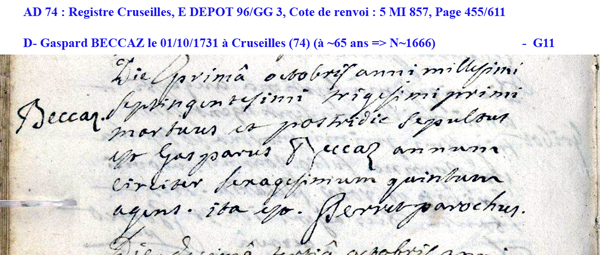 AD 74 : Registre Cruseilles, E DEPOT 96/GG 3, Cote de renvoi : 5 MI 857, Page 455/611
D- Gaspard BECCAZ le 01/10/1731 à Cruseilles (74) (à ~65 ans => N~1666) - G11
Die prima octobris anni millesimi
Beccaz. septingentesimi trigesimi primi
mortuus et postridie sepultus
est Gasparus Beccaz annum
circiter sexagesimum quintum
agens. ita est. Berret parochus.
Die decima tertia octobris anni